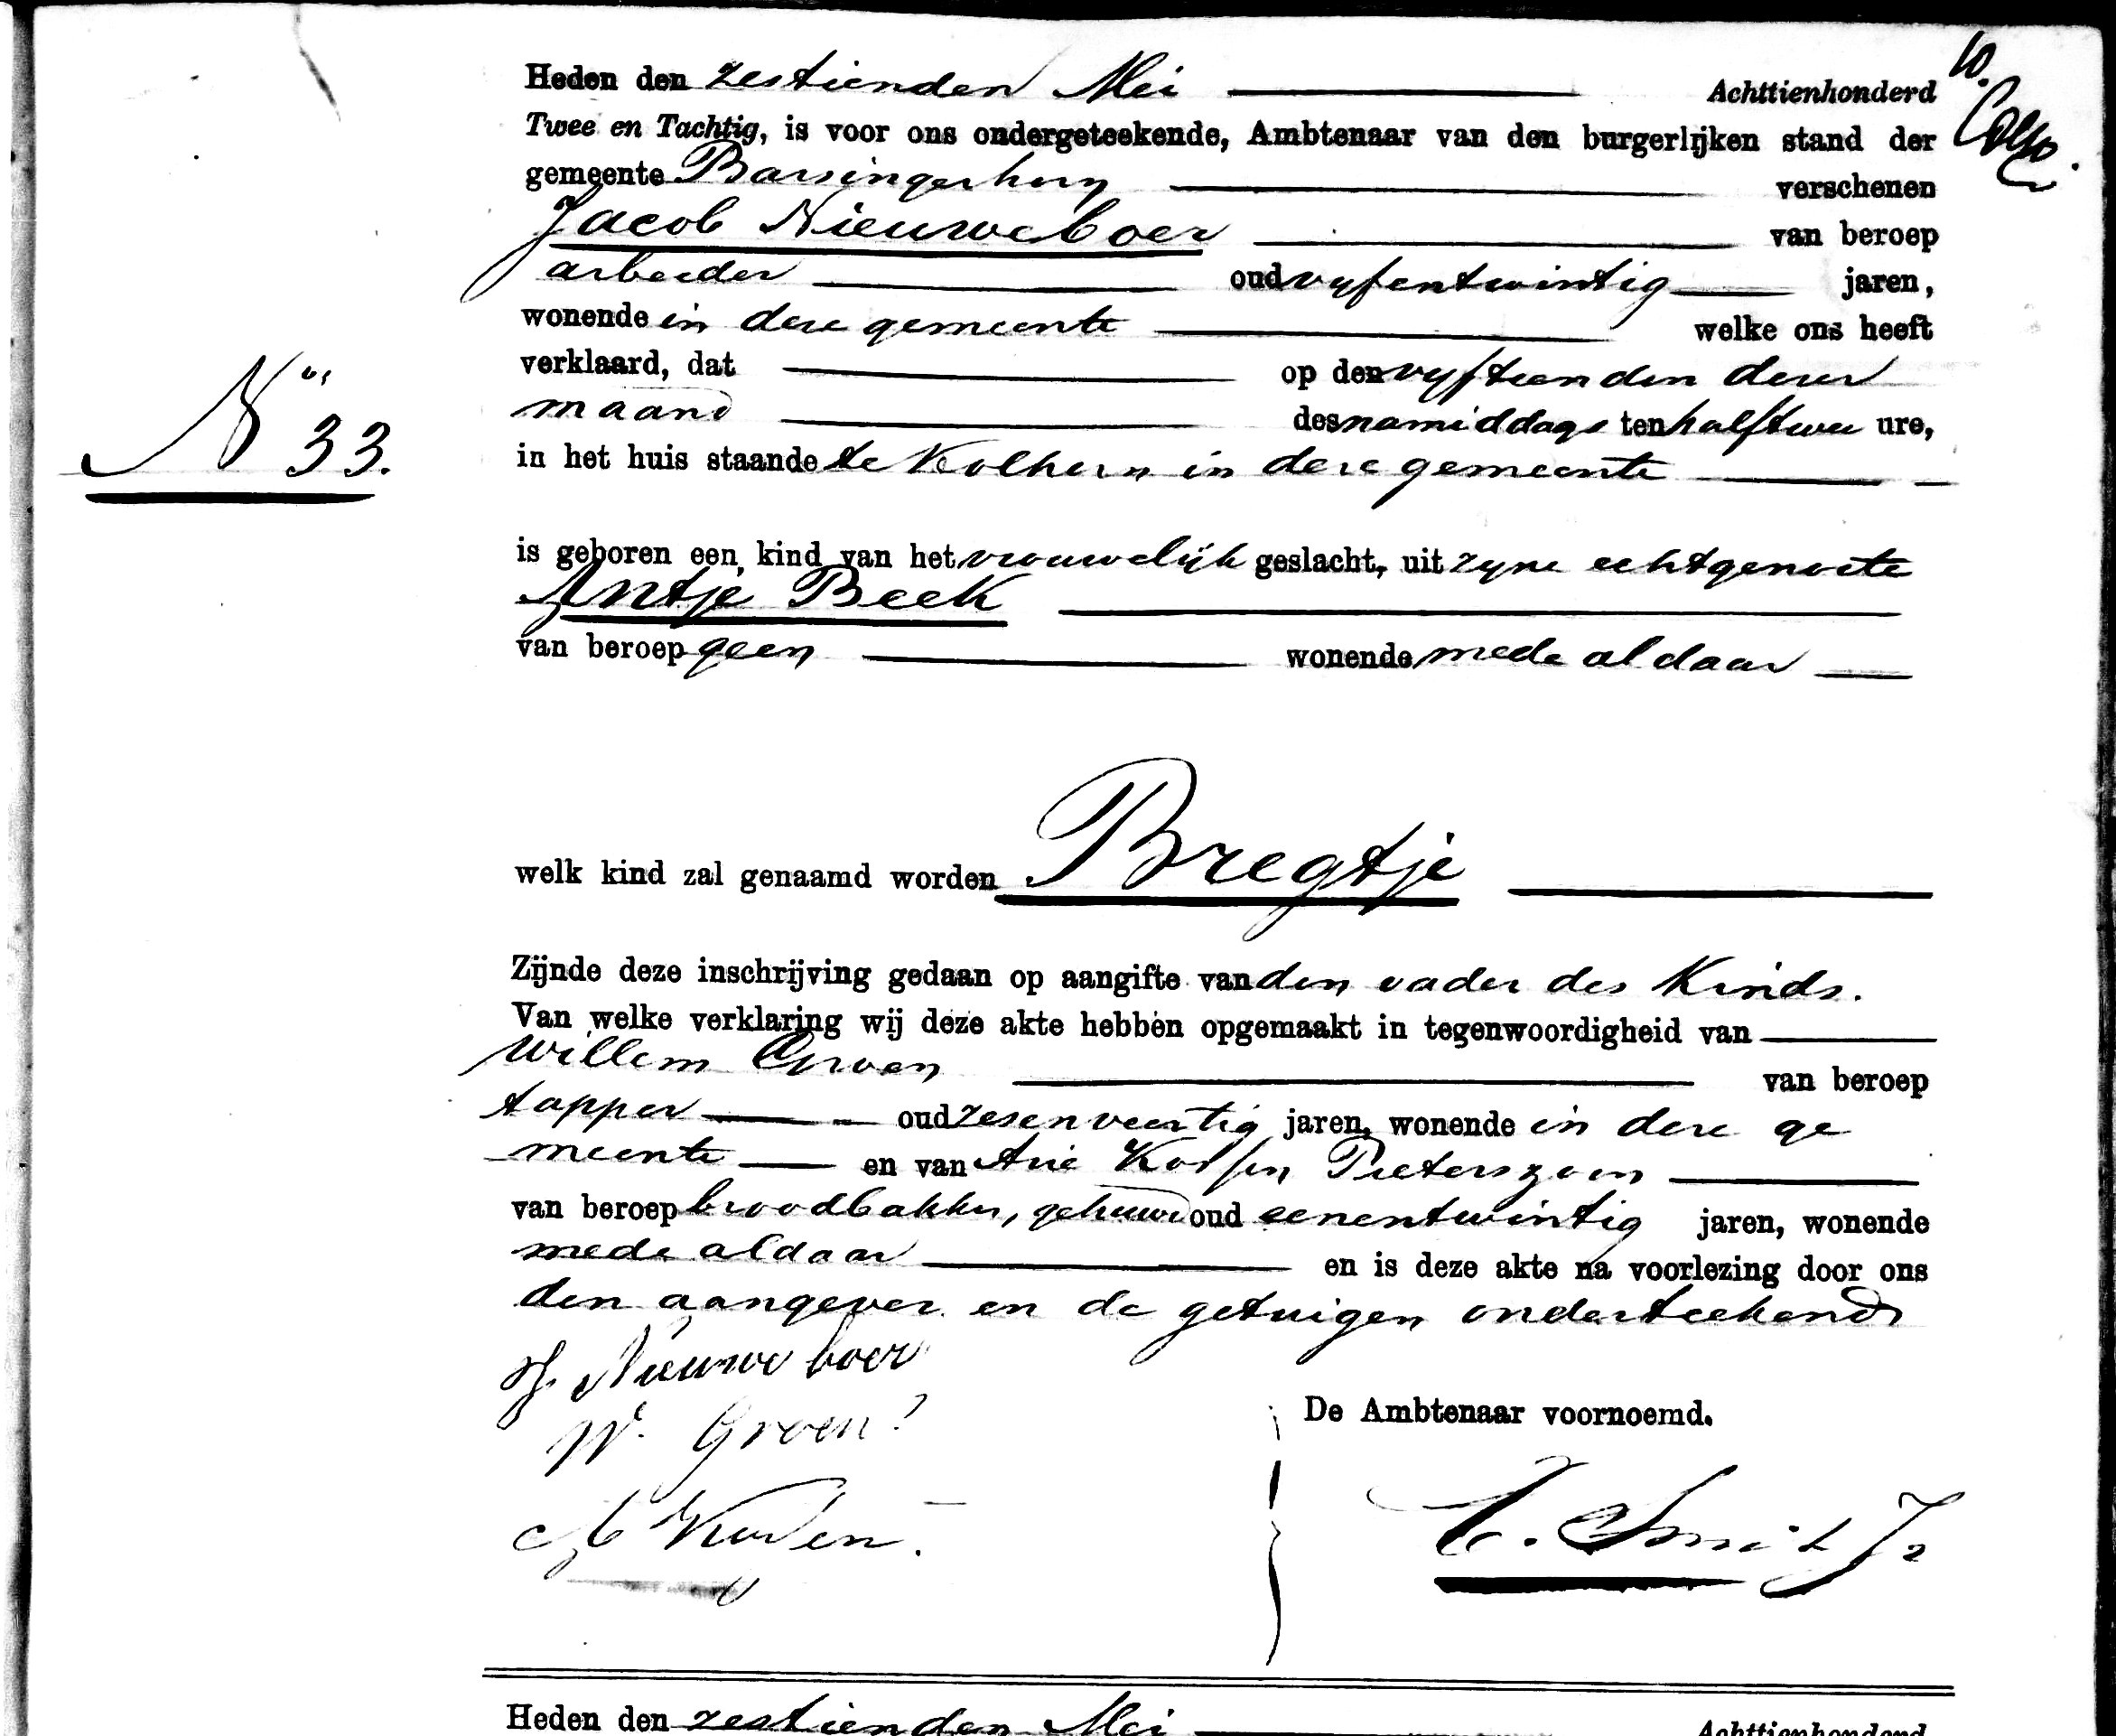 10.
Heden den zestienden Mei Achttienhonderd
Twee en Tachtig, is voor ons ondergeteekende, Ambtenaar van den burgerlijken stand der
gemeente Barsingerhorn verschenen
Jacob Nieuweboer van beroep
arbeider oud vyfentwintig jaren,
wonende in deze gemeente welke ons heeft
verklaard, dat op den vyftienden dezer
maand des namiddags ten half twee ure,
in het huis staande te Kolhorn in deze gemeente
No 33.
is geboren een kind van het vrouwelijk geslacht, uit zyne echtgenoote
Antje Beek
van beroep geen wonende mede aldaar
welk kind zal genaamd worden Bregtje
Zijnde deze inschrijving gedaan op aangifte van den vader des Kinds.
Van welke verklaring wij deze akte hebben opgemaakt in tegenwoordigheid van
Willem Groen van beroep
tapper oud zesenveertig jaren, wonende in deze ge
meente en van Arie Pieterszoon
van beroep broodbakker, gehuwd oud eenentwintig jaren, wonende
mede aldaar en is deze akte na voorlezing door ons
den aangever en de getuigen onderteekend
J. Nieuweboer
W. Groen
De Ambtenaar voornoemd.
Smit Jz
Heden den zestienden Mei Achttienhonderd